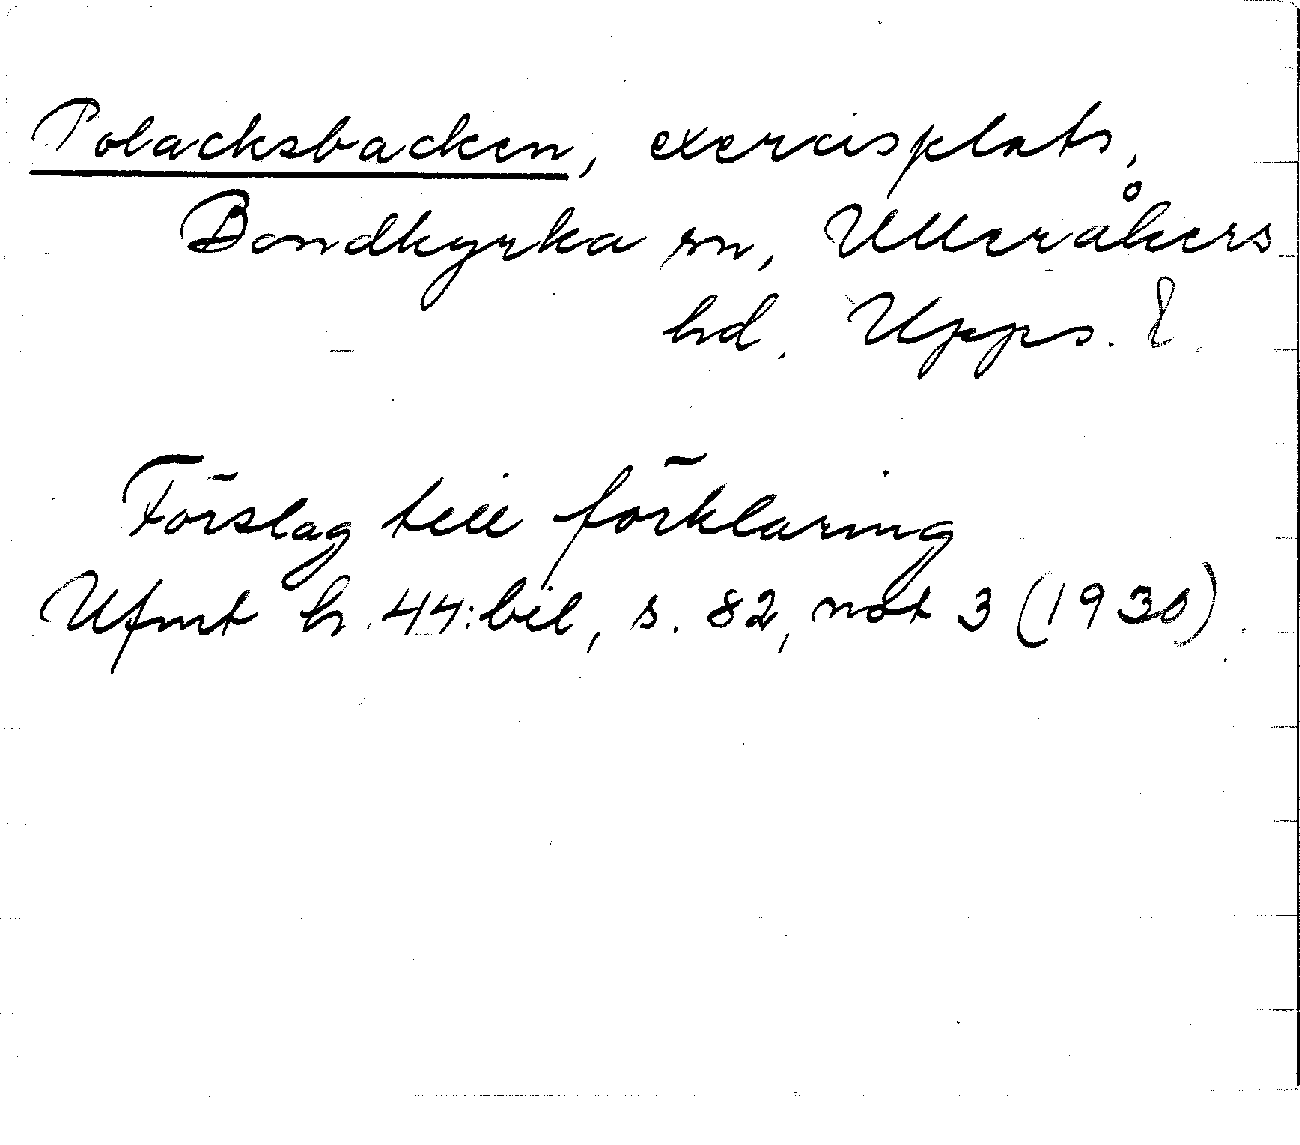 Polacksbacken, exercisplats,
Bondkyrka sn, Ulleråkers
hd. Upps. l.
Förslag till förklaring
Ufmt h. 44:bil, s. 82, not 3 (1930).